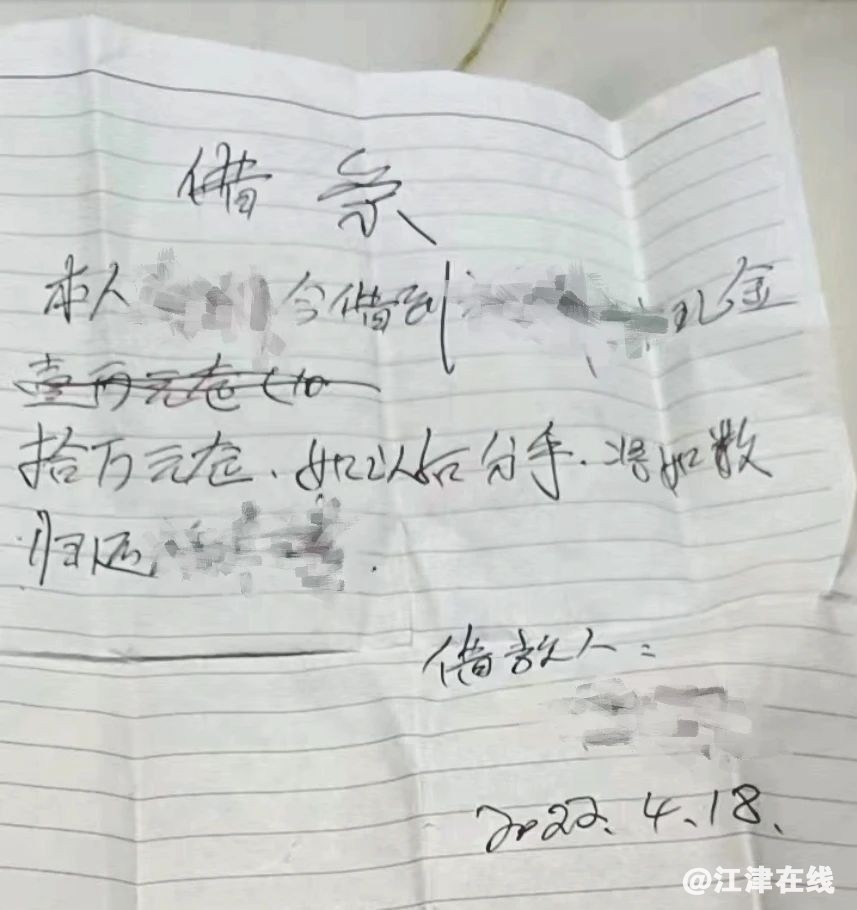 借条
本人 今借到 礼金
壹万元仓（10
拾万元仓、如以后分手、将如数
归还 .
借款人:
2022.4.18.
@江津在线